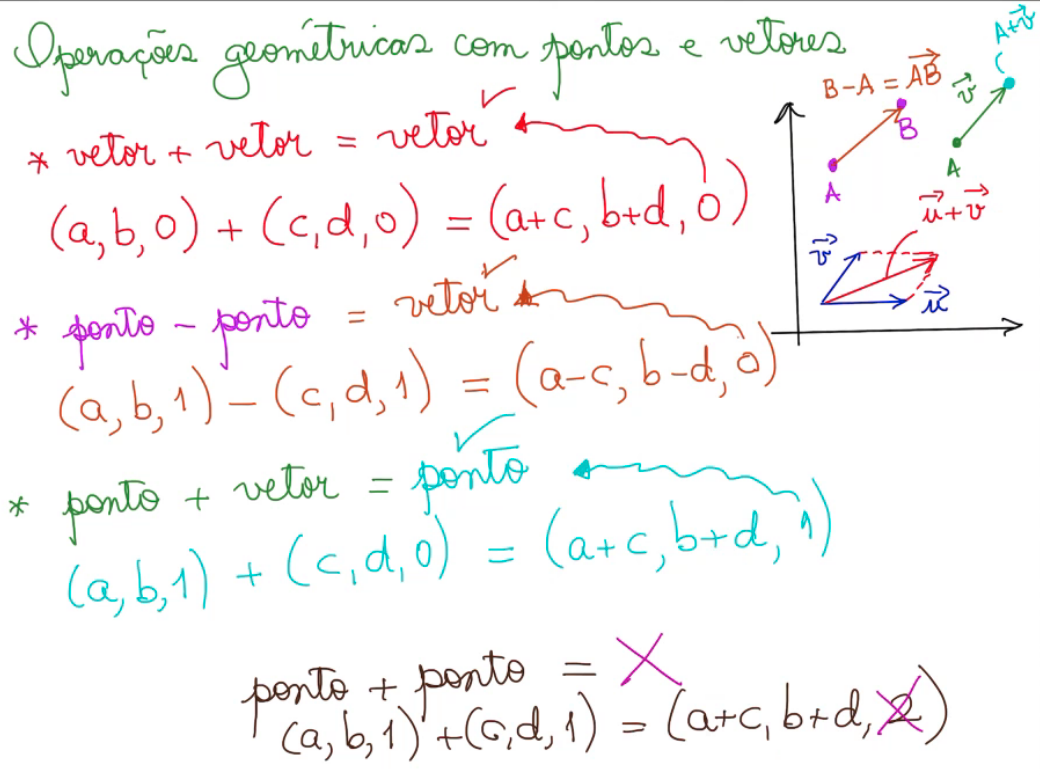 Operações geométricas com pontos e vetores
* vetor + vetor = vetor ✓
(a, b, 0) + (c, d, 0) = (a+c, b+d, 0)
* ponto - ponto = vetor ✓
(a, b, 1) - (c, d, 1) = (a-c, b-d, 0)
* ponto + vetor = ponto ✓
(a, b, 1) + (c, d, 0) = (a+c, b+d, 1)
ponto + ponto = X
(a, b, 1) + (c, d, 1) = (a+c, b+d, 2)
B-A = \vec{AB}
A
B
A+\vec{v}
C
\vec{v}
A
\vec{u}+\vec{v}
\vec{v}
\vec{u}